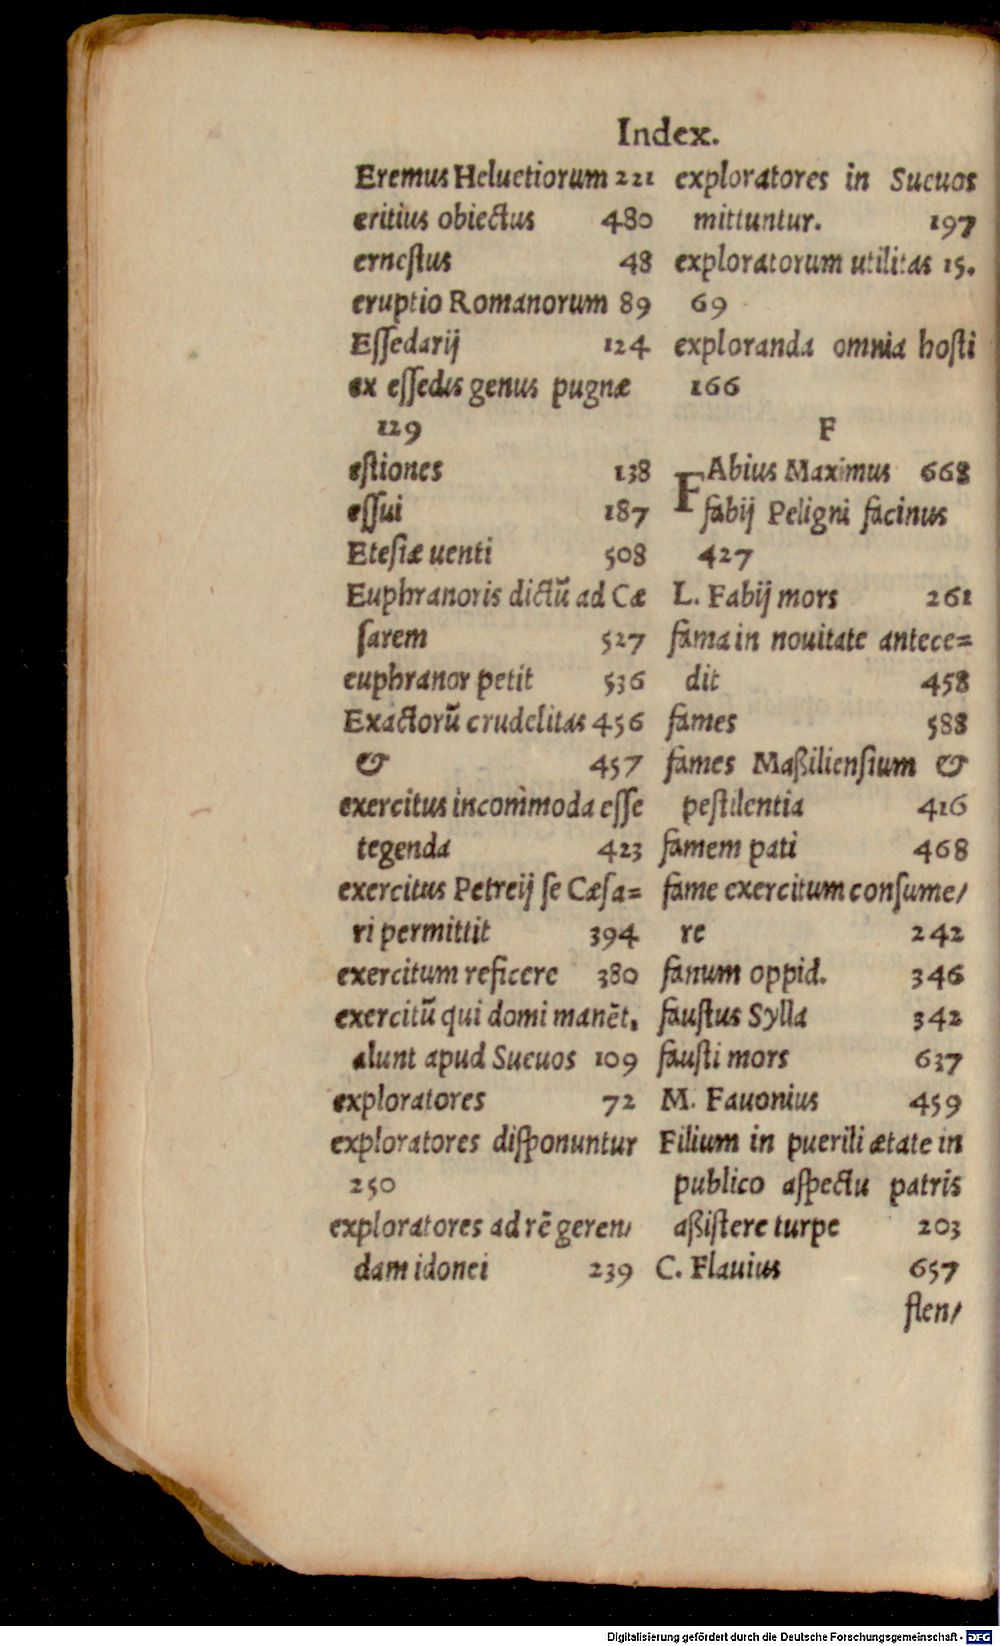 Index.
Eremus Heluetiorum 221
eritius obiectus 480
erneſtus 48
eruptio Romanorum 89
Eſſedarij 124
ex eſſedis genus pugnæ
129
eſtiones 138
eſſui 187
Eteſiæ uenti 508
Euphranoris dictũ ad Cæ
ſarem 527
euphranor petit 536
Exactorũ crudelitas 456
& 457
exercitus incom̀moda eſſe
tegenda 423
exercitus Petreij ſe Cæſa=
ri permittit 394
exercitum reficere 380
exercitũ qui domi manẽt,
alunt apud Sueuos 109
exploratores 72
exploratores diſponuntur
250
exploratores ad rẽ geren/
dam idonei 239
exploratores in Sueuos
mittuntur. 197
exploratorum utilitas 15.
69
exploranda omnia hoſti
166
F
FAbius Maximus 668
fabij Peligni facinus
427
L. Fabij mors 261
fama in nouitate antece=
dit 458
fames 588
fames Maßilienſium &
peſtilentia 416
famem pati 468
fame exercitum conſume/
re 242
fanum oppid. 346
fauſtus Sylla 342
fauſti mors 637
M. Fauonius 459
Filium in puerili ætate in
publico aſpectu patris
aßiſtere turpe 203
C. Flauius 657
flen/
Digitalisierung gefördert durch die Deutsche Forschungsgemeinschaft - DFG